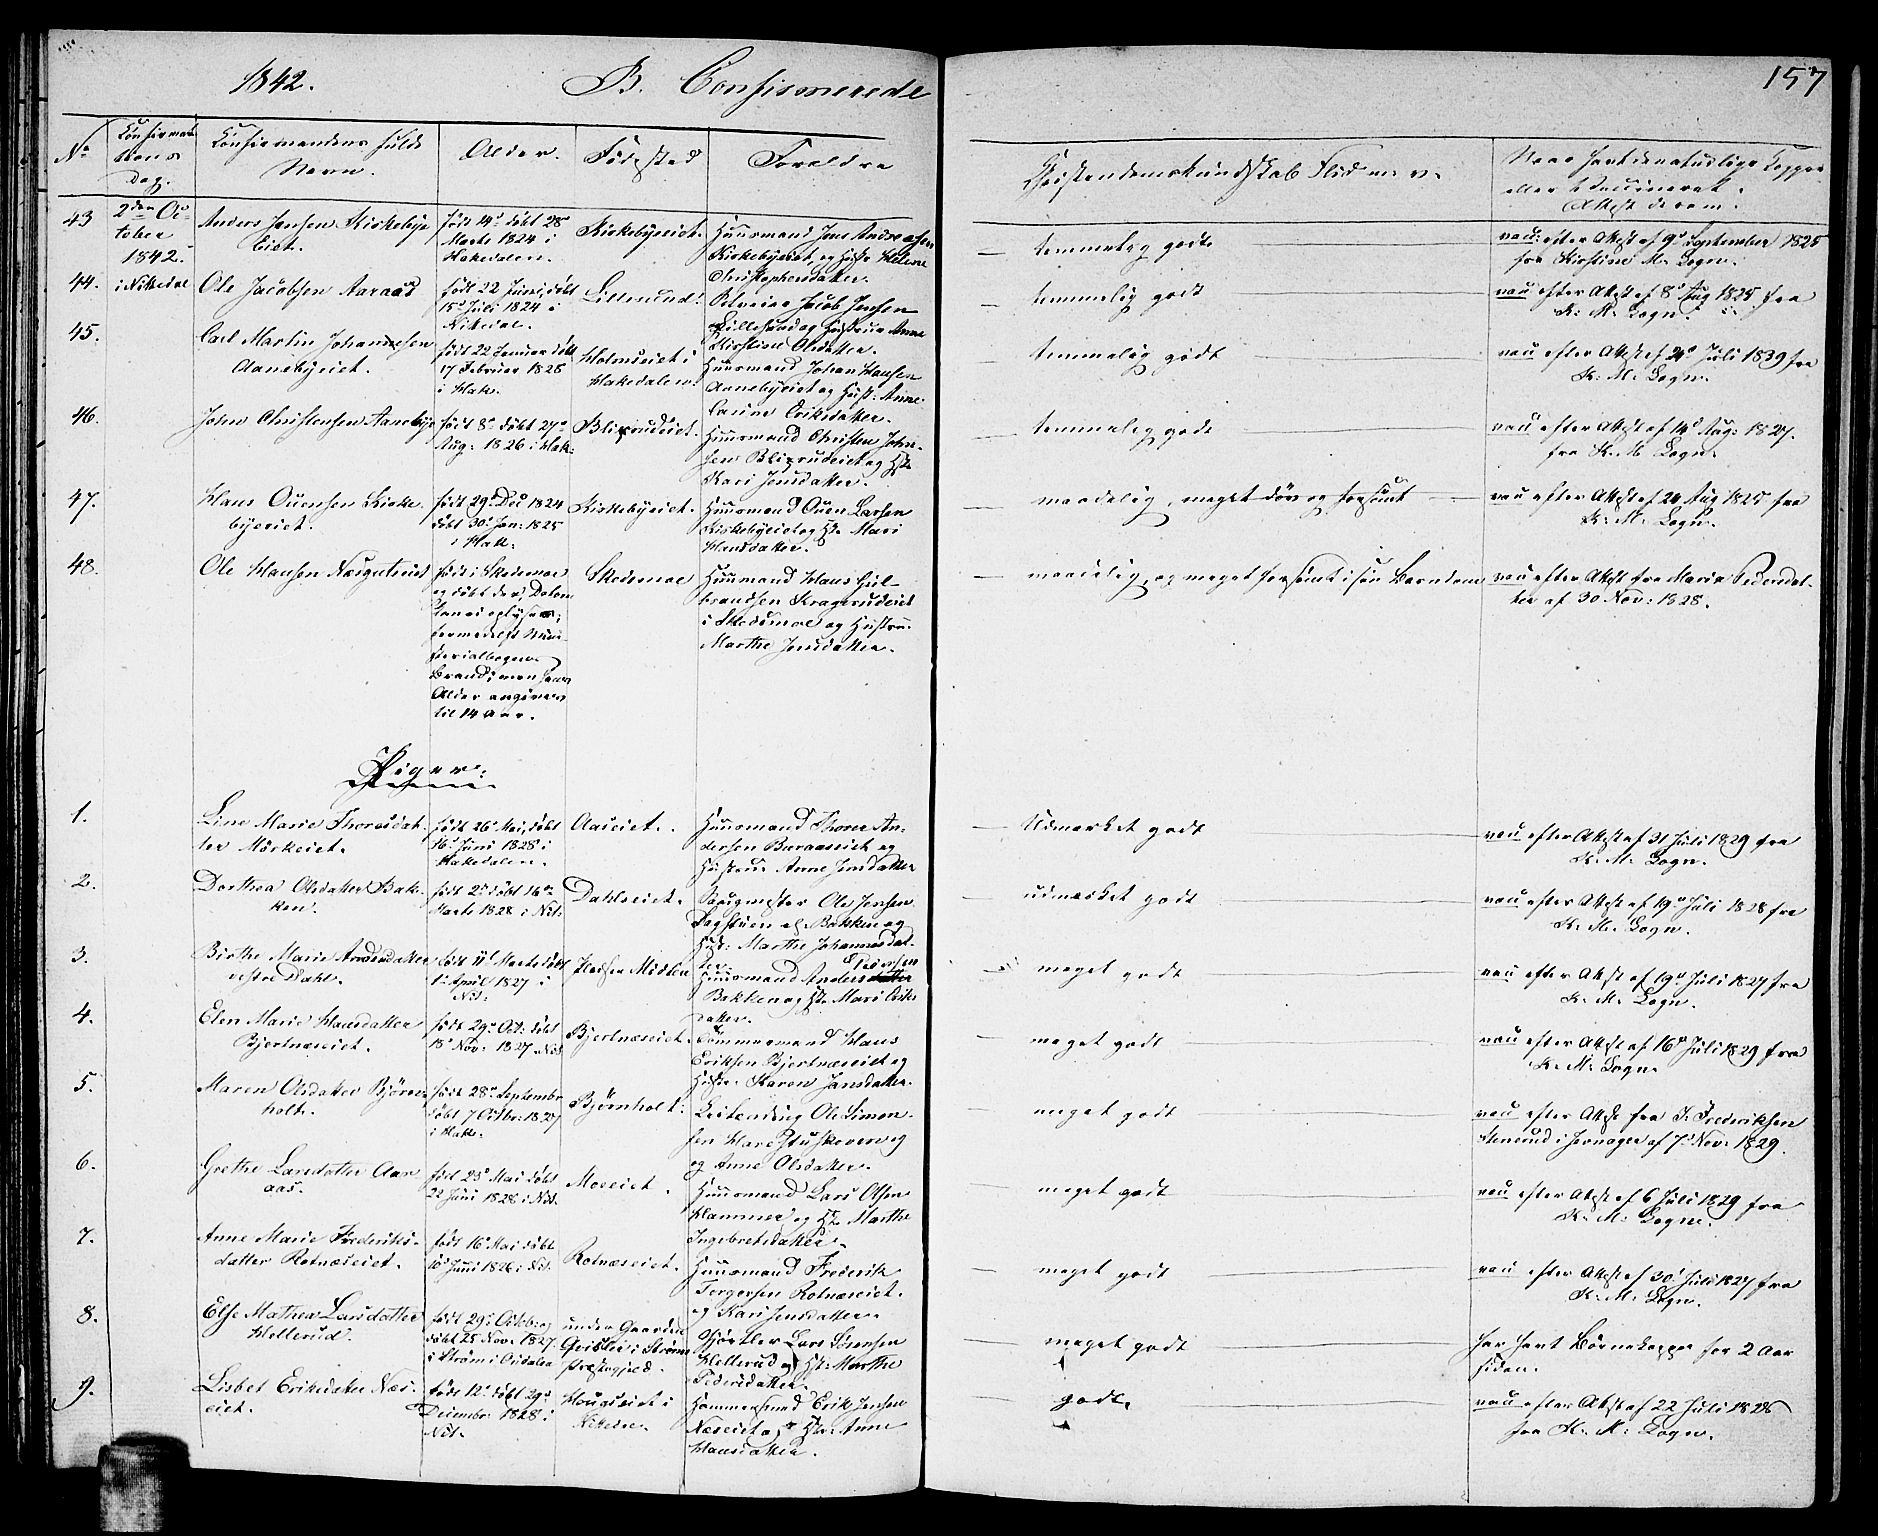 1842. B. Confirmerede 157
No
Confirmationens Dag.
Confirmandens fulde Navn.
Alder.
Fødested
Forældre
Christendomskundskab Flid m. v.
Naar havt de naturlige Kopper eller Vaccineret. Attest derom.
43
2den October 1842. i Nitedal
Anders Jensen Kirkebye Eiet.
født 14de døbt 28de Marts 1824 i Hakedalen.
Kirkebyeiet.
Huusmand Jens Andreasen Kirkebyeiet, og Hust Helene Christophersdatter.
temmelig godt
vac: efter Attest af 9de September 1825 fra Kirstine M. Gogn.
44.
Ole Jacobsen Aaraas
født 22 Juni, døbt 18de Juli 1824 i Nitedal.
Lillesund.
Jacob Jensen Lillesund og Hustrue Anne Kirstine Olsdatter.
temmelig godt
vac efter Attest af 8de Aug 1825 fra K. M. Gogn.
45.
Carl Martin Johannesen Aanebyeiet.
født 22 Januar døbt 17 Februar 1828 i Hak.
Holmseiet i Hakedalen.
Huusmand Johan Hansen Aanebyeiet og Hust: Anne Laurine Eriksdatter.
temmelig godt
vac efter Attest af 24de Juli 1839 fra K: M: Gogn.
46.
John Christensen Aanebye
født 8de døbt 27de Aug: 1826 i Hak:
Blixrudeiet.
Huusmand Christen Johnsen Blixrudeiet og Hst Kari Jensdatter.
temmelig godt
vac efter Attest af 14de Aug: 1827. fra K. M. Gogn.
47.
Hans Ouensen Kirkebyeeiet.
født 29de Dec 1824 døbt 30 Jan: 1825 i Hak:
Kirkebyeiet.
Huusmand Ouen Larsen Kirkebyeiet og Hst Mari Hansdatter.
maadelig, meget døv og forsømt
vac efter Attest af 24 Aug 1825 fra K: M: Gogn.
48.
Ole Hansen
født i Skedsmoe og døbt der, Datum kan ei oplyses formedelst Ministerialbogens Brand; men hans Alder angives til 14 Aar.
Skedsmoe
Huusmand Hans Gulbrandsen Kragerudeiet i Skedsmoe og Hustru Marthe Jensdatter.
maadelig og meget forsømt i sin Barndom
vac efter Attest fra Maria Pedersdatter af 30 Nov: 1828.
Piger.
1.
Line Marie Thoresdatter Mørkeiet.
født 26de Mai, døbt 16de Juni 1828 i Hakedalen.
Aaseiet.
Huusmand Thorer Andersen Buraaseiet og Hustrue Anne Jensdatter
Udmærket godt
vac efter Attest af 31 Juli 1829 fra K. M. Gogn.
2.
Dorthea Olsdatter Bakken.
født 2de døbt 16de Marts 1828 i Nit.
Dahlseiet.
Ole Jensen Dagstuen el. Bakken og Hust: Marthe Johannesdatter.
udmærket godt
vac efter Attest af 19de Juli 1828 fra K. M. Gogn.
3.
Birthe Marie Andersdatter vestre Dahl.
født 11te Marts døbt 1te April 1827 i Nit:
Huusmand Anders Pedersen Bakken og Hst Mari datter.
meget godt
vac efter Attest af 19de Juli 1827 fra K. M. Gogn.
4.
Elen Marie Hansdatter Bjertnæseiet.
født 29de Oct: døbt 18de Nov: 1827 Nit
Bjertnæseiet.
Tømmermand Hans Eriksen Bjertnæseiet og Hust: Karen Jansdatter.
meget godt
vac efter Attest af 16de Juli 1829 fra K. M. Gogn.
5.
Maren Olsdatter Bjørnholt.
født 28de September døbt 7 Octbr: 1827 i Hak.
Bjørnholt.
Leilending Ole Simensen og Anne Olsdatter.
meget godt
vac efter Attest fra J. Frederiksen Stenerud i Jevnager af 7de Nov: 1829.
6.
Grethe Larsdatter Aaraas.
født 25de Mai døbt 22 Juni 1828 i Nit.
Moeeiet.
Huusmand Lars Olsen Hammer og Hst Marthe Ingebretsdatter.
meget godt
vac efter Attest af 6 Juli 1829 fra K. M. Gogn.
7.
Anne Marie Frederiksdatter Rotnæseiet.
født 16de Mai døbt Juni 1826 i Nit.
Rotnæseiet.
Huusmand Frederik Torgersen Rotnæseiet. og Kari Jensdatter.
meget godt
vac efter Attest af 30te Juli 1827 fra K. M. Gogn.
8.
Else Mathea Larsdatter Hellerud.
født 29de Octob: og døbt 25 Nov: 1827 i Strøm i Oudalen
under Gaarden i Strøm Præstegjeld.
Lars Sørensen Hellerud og Hst: Marthe Pedersdatter.
meget godt
har havt Børnekopper for 2 Aar siden.
9.
Lisbet Eriksdatter Næseiet.
født 12te døbt 29de Decembr 1828 i Nit.
Haugseiet i Nitedal.
Hammersmed Erik Jensen Næseiet og Hst: Anne Hansdatter.
godt.
vac efter Attest af 22 Juli 1828 fra K. M. Gogn.